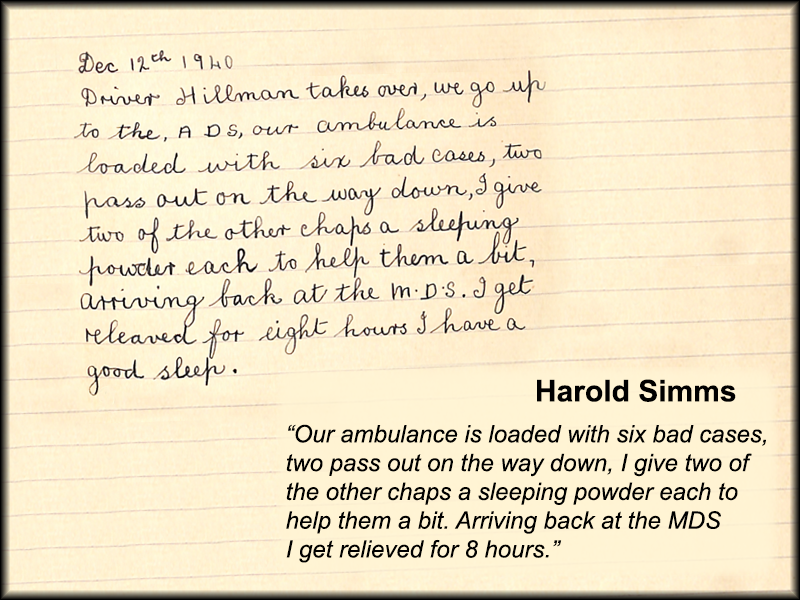 Dec 12th 1940
Driver Hillman takes over, we go up
to the, A D S, our ambulance is
loaded with six bad cases, two
pass out on the way down, I give
two of the other chaps a sleeping
powder each to help them a bit,
arriving back at the M.D.S. I get
releaved for eight hours I have a
good sleep.
Harold Simms
“Our ambulance is loaded with six bad cases,
two pass out on the way down, I give two of
the other chaps a sleeping powder each to
help them a bit. Arriving back at the MDS
I get relieved for 8 hours.”